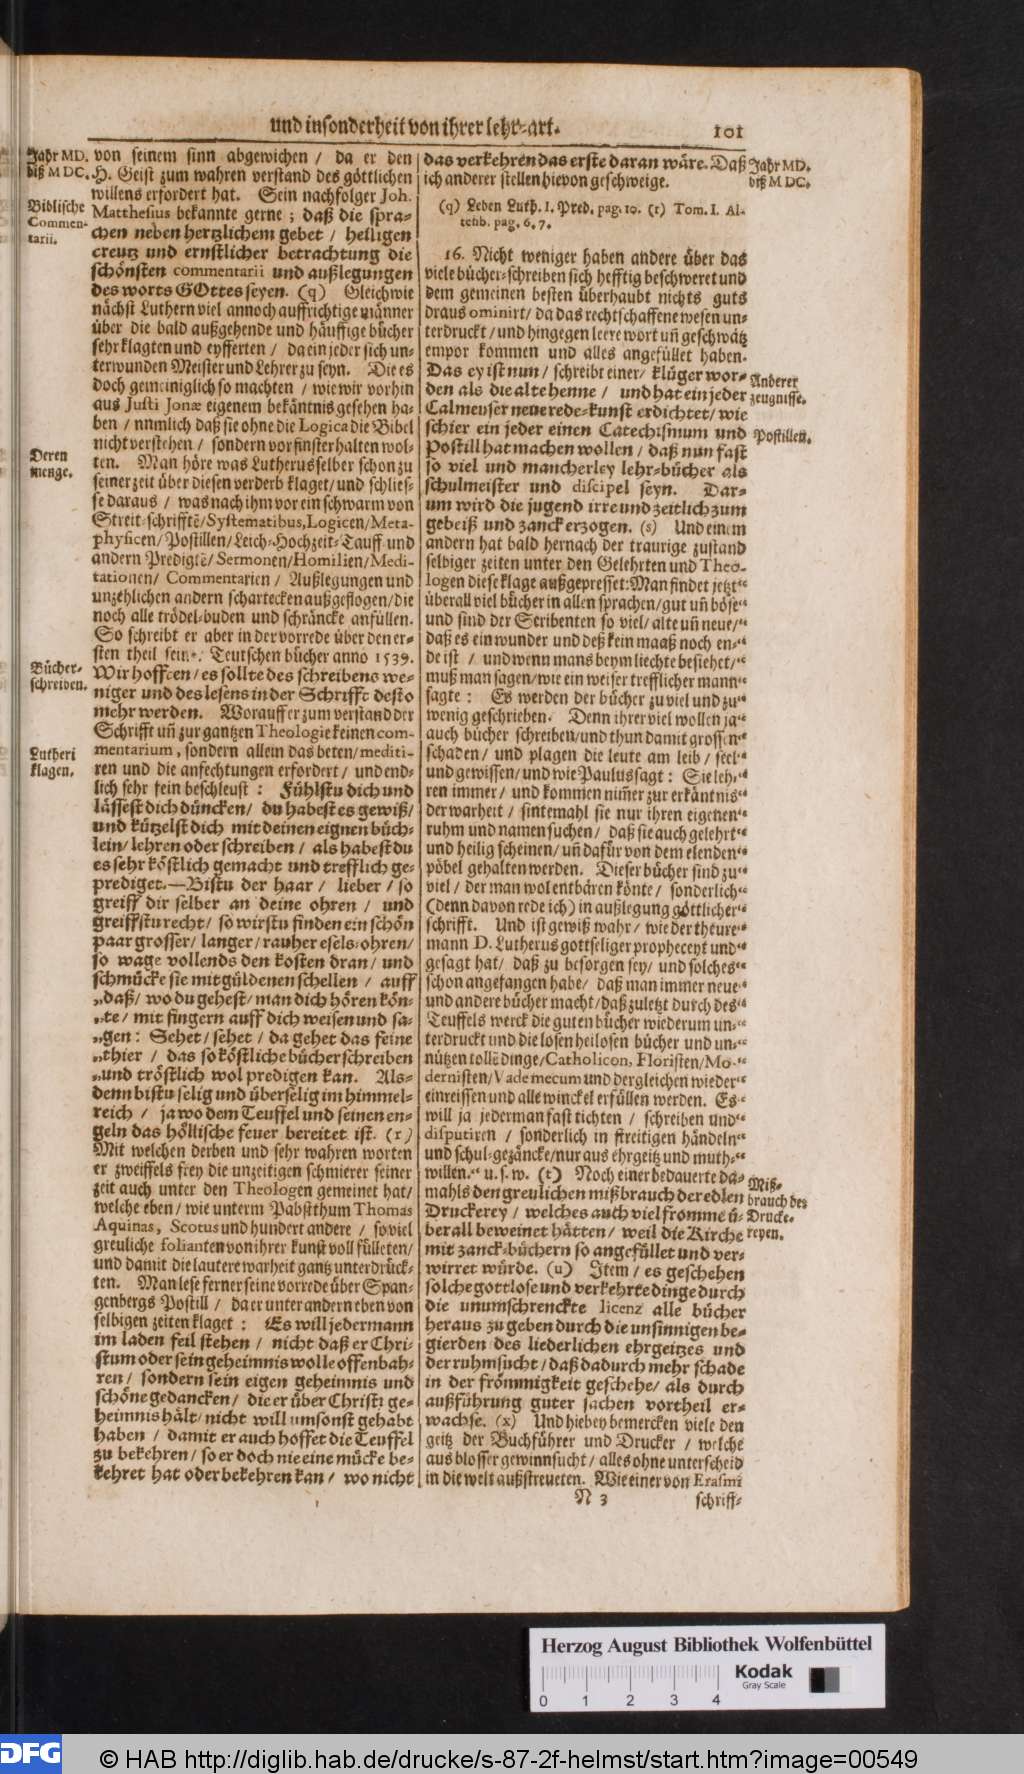 und insonderheit von ihrer lehr-art.
101
Jahr MD.
biß M DC.
Biblische
Commen-
tarii.
Deren
menge.
Bücher-
schreiben.
Lutheri
klagen.
von seinem sinn abgewichen / da er den
H. Geist zum wahren verstand des göttlichen
willens erfordert hat. Sein nachfolger Joh.
Matthesius bekannte gerne ; daß die spra-
chen neben hertzlichem gebet / heiligen
creutz und ernstlicher betrachtung die
schönsten commentarii und außlegungen
des worts GOttes seyen. (q) Gleichwie
nächst Luthern viel annoch auffrichtige männer
über die bald außgehende und häuffige bücher
sehr klagten und eyfferten / da ein jeder sich un-
terwunden Meister und Lehrer zu seyn. Die es
doch gemeiniglich so machten / wie wir vorhin
aus Justi Jonæ eigenem bekäntnis gesehen ha-
ben / nnmlich daß sie ohne die Logica die Bibel
nicht verstehen / sondern vor finster halten wol-
ten. Man höre was Lutherus selber schon zu
seiner zeit über diesen verderb klaget / und schlies-
se daraus / was nach ihm vor ein schwarm von
Streit-schrifftē/Systematibus, Logicen/Meta-
physicen/Postillen/Leich-Hochzeit-Tauff-und
andern Predigtē/Sermonen/Homilien/Medi-
tationen/ Commentarien / Außlegungen und
unzehlichen andern schartecken außgeflogen/die
noch alle trödel-buden und schräncke anfüllen.
So schreibt er aber in der vorrede über den er-
sten theil seiner Teutschen bücher anno 1539.
Wir hoffcen / es sollte des schreibens we-
niger und des lesens in der Schrifft desto
mehr werden. Worauff er zum verstand der
Schrifft uñ zur gantzen Theologie keinen com-
mentarium, sondern allein das beten/mediti-
ren und die anfechtungen erfordert / und end-
lich sehr fein beschleust : Fühlstu dich und
lässest dich düncken/ du habest es gewiß/
und kützelst dich mit deinen eignen büch-
lein/ lehren oder schreiben / als habest du
es sehr köstlich gemacht und trefflich ge-
prediget.—Bistu der haar / lieber / so
greiff dir selber an deine ohren / und
greiffstu recht/ so wirstu finden ein schön
paar grosser/ langer/ rauher esels-ohren/
so wage vollends den kosten dran / und
schmücke sie mit güldenen schellen / auff
„daß/ wo du gehest/ man dich hören kön-
„te/ mit fingern auff dich weisen und sa-
„gen: Sehet/ sehet / da gehet das feine
„thier / das so köstliche bücher schreiben
„und tröstlich wol predigen kan. Als-
denn bistu selig und überselig im himmel-
reich / ja wo dem Teuffel und seinen en-
geln das höllische feuer bereitet ist. (r)
Mit welchen derben und sehr wahren worten
er zweiffels frey die unzeitigen schmierer seiner
zeit auch unter den Theologen gemeinet hat/
welche eben / wie unterm Pabstthum Thomas
Aquinas, Scotus und hundert andere / so viel
greuliche folianten von ihrer kunst voll fülleten/
und damit die lautere warheit gantz unterdrück-
ten. Man lese ferner seine vorrede über Span-
genbergs Postill / da er unter andern eben von
selbigen zeiten klaget : Es will jedermann
im laden feil stehen / nicht daß er Chri-
stum oder sein geheimnis wolle offenbah-
ren / sondern sein eigen geheimnis und
schöne gedancken / die er über Christi ge-
heimnis hält/ nicht will umsonst gehabt
haben / damit er auch hoffet die Teuffel
zu bekehren / so er doch nie eine mücke be-
kehret hat oder bekehren kan / wo nicht
das verkehren das erste daran wäre. Daß
ich anderer stellen hievon geschweige.
(q) Leben Luth. I. Pred. pag. 10. (r) Tom. I. Al-
tenb. pag. 6. 7.
16. Nicht weniger haben andere über das
viele bücher-schreiben sich hefftig beschweret und
dem gemeinen besten überhaubt nichts guts
draus ominirt/ da das rechtschaffene wesen un-
terdruckt / und hingegen leere wort uñ geschwätz
empor kommen und alles angefüllet haben.
Das ey ist nun / schreibt einer/ klüger wor-
den als die alte henne / und hat ein jeder
Calmeuser neue rede-kunst erdichtet/ wie
schier ein jeder einen Catechismum und
Postill hat machen wollen / daß nun fast
so viel und mancherley lehr-bücher als
schulmeister und discipel seyn. Dar-
um wird die jugend irre und zeitlich zum
gebeiß und zanck erzogen. (s) Und einem
andern hat bald hernach der traurige zustand
selbiger zeiten unter den Gelehrten und Theo-
logen diese klage außgepresset: Man findet jetzt“
überall viel bücher in allen sprachen/ gut uñ böse“
und sind der Scribenten so viel/ alte uñ neue/“
daß es ein wunder und deß kein maaß noch en-“
de ist / und wenn mans beym liechte besiehet/“
muß man sagen/ wie ein weiser trefflicher mann“
sagte : Es werden der bücher zu viel und zu“
wenig geschrieben. Denn ihrer viel wollen ja“
auch bücher schreiben/und thun damit grossen“
schaden / und plagen die leute am leib / seel“
und gewissen / und wie Paulus sagt : Sie leh-“
ren immer / und kommen nim̄er zur erkäntnis“
der warheit / sintemahl sie nur ihren eigenen“
ruhm und namen suchen / daß sie auch gelehrt“
und heilig scheinen/ uñ dafür von dem elenden“
pöbel gehalten werden. Dieser bücher sind zu“
viel / der man wol entbären könte / sonderlich“
(denn davon rede ich) in außlegung göttlicher“
schrifft. Und ist gewiß wahr / wie der theure“
mann D. Lutherus gottseliger propheceyt und“
gesagt hat/ daß zu besorgen sey/ und solches“
schon angefangen habe / daß man immer neue“
und andere bücher macht / daß zuletzt durch des“
Teuffels werck die guten bücher wiederum un-“
terdruckt und die losen heilosen bücher und un-“
nützen tollē dinge/Catholicon, Floristen/Mo-“
dernisten/Vade mecum und dergleichen wieder“
einreissen und alle winckel erfüllen werden. Es“
will ja jederman fast tichten / schreiben und“
disputiren / sonderlich in streitigen händeln“
und schul-gezäncke/nur aus ehrgeitz und muth-“
willen.“ u. s. w. (t) Noch einer bedauerte da-
mahls den greulichen mißbrauch der edlen
Druckerey / welches auch viel fromme ü-
berall beweinet hätten / weil die Kirche
mit zanck-büchern so angefüllet und ver-
wirret würde. (u) Item / es geschehen
solche gottlose und verkehrte dinge durch
die unumschrenckte licenz alle bücher
heraus zu geben durch die unsinnigen be-
gierden des liederlichen ehrgeitzes und
der ruhmsucht / daß dadurch mehr schade
in der frömmigkeit geschehe/ als durch
außführung guter sachen vortheil er-
wachse. (x) Und hiebey bemercken viele den
geitz der Buchführer und Drucker / welche
aus blosser gewinnsucht / alles ohne unterscheid
in die welt außstreueten. Wie einer von Erasmi
N 3
schriff-
Jahr MD.
biß M DC.
Anderer
zeugnisse.
Postillen.
Miß-
brauch des
Drucke-
reyen.
Herzog August Bibliothek Wolfenbüttel
Kodak
Gray Scale
0 1 2 3 4
DFG
© HAB http://diglib.hab.de/drucke/s-87-2f-helmst/start.htm?image=00549